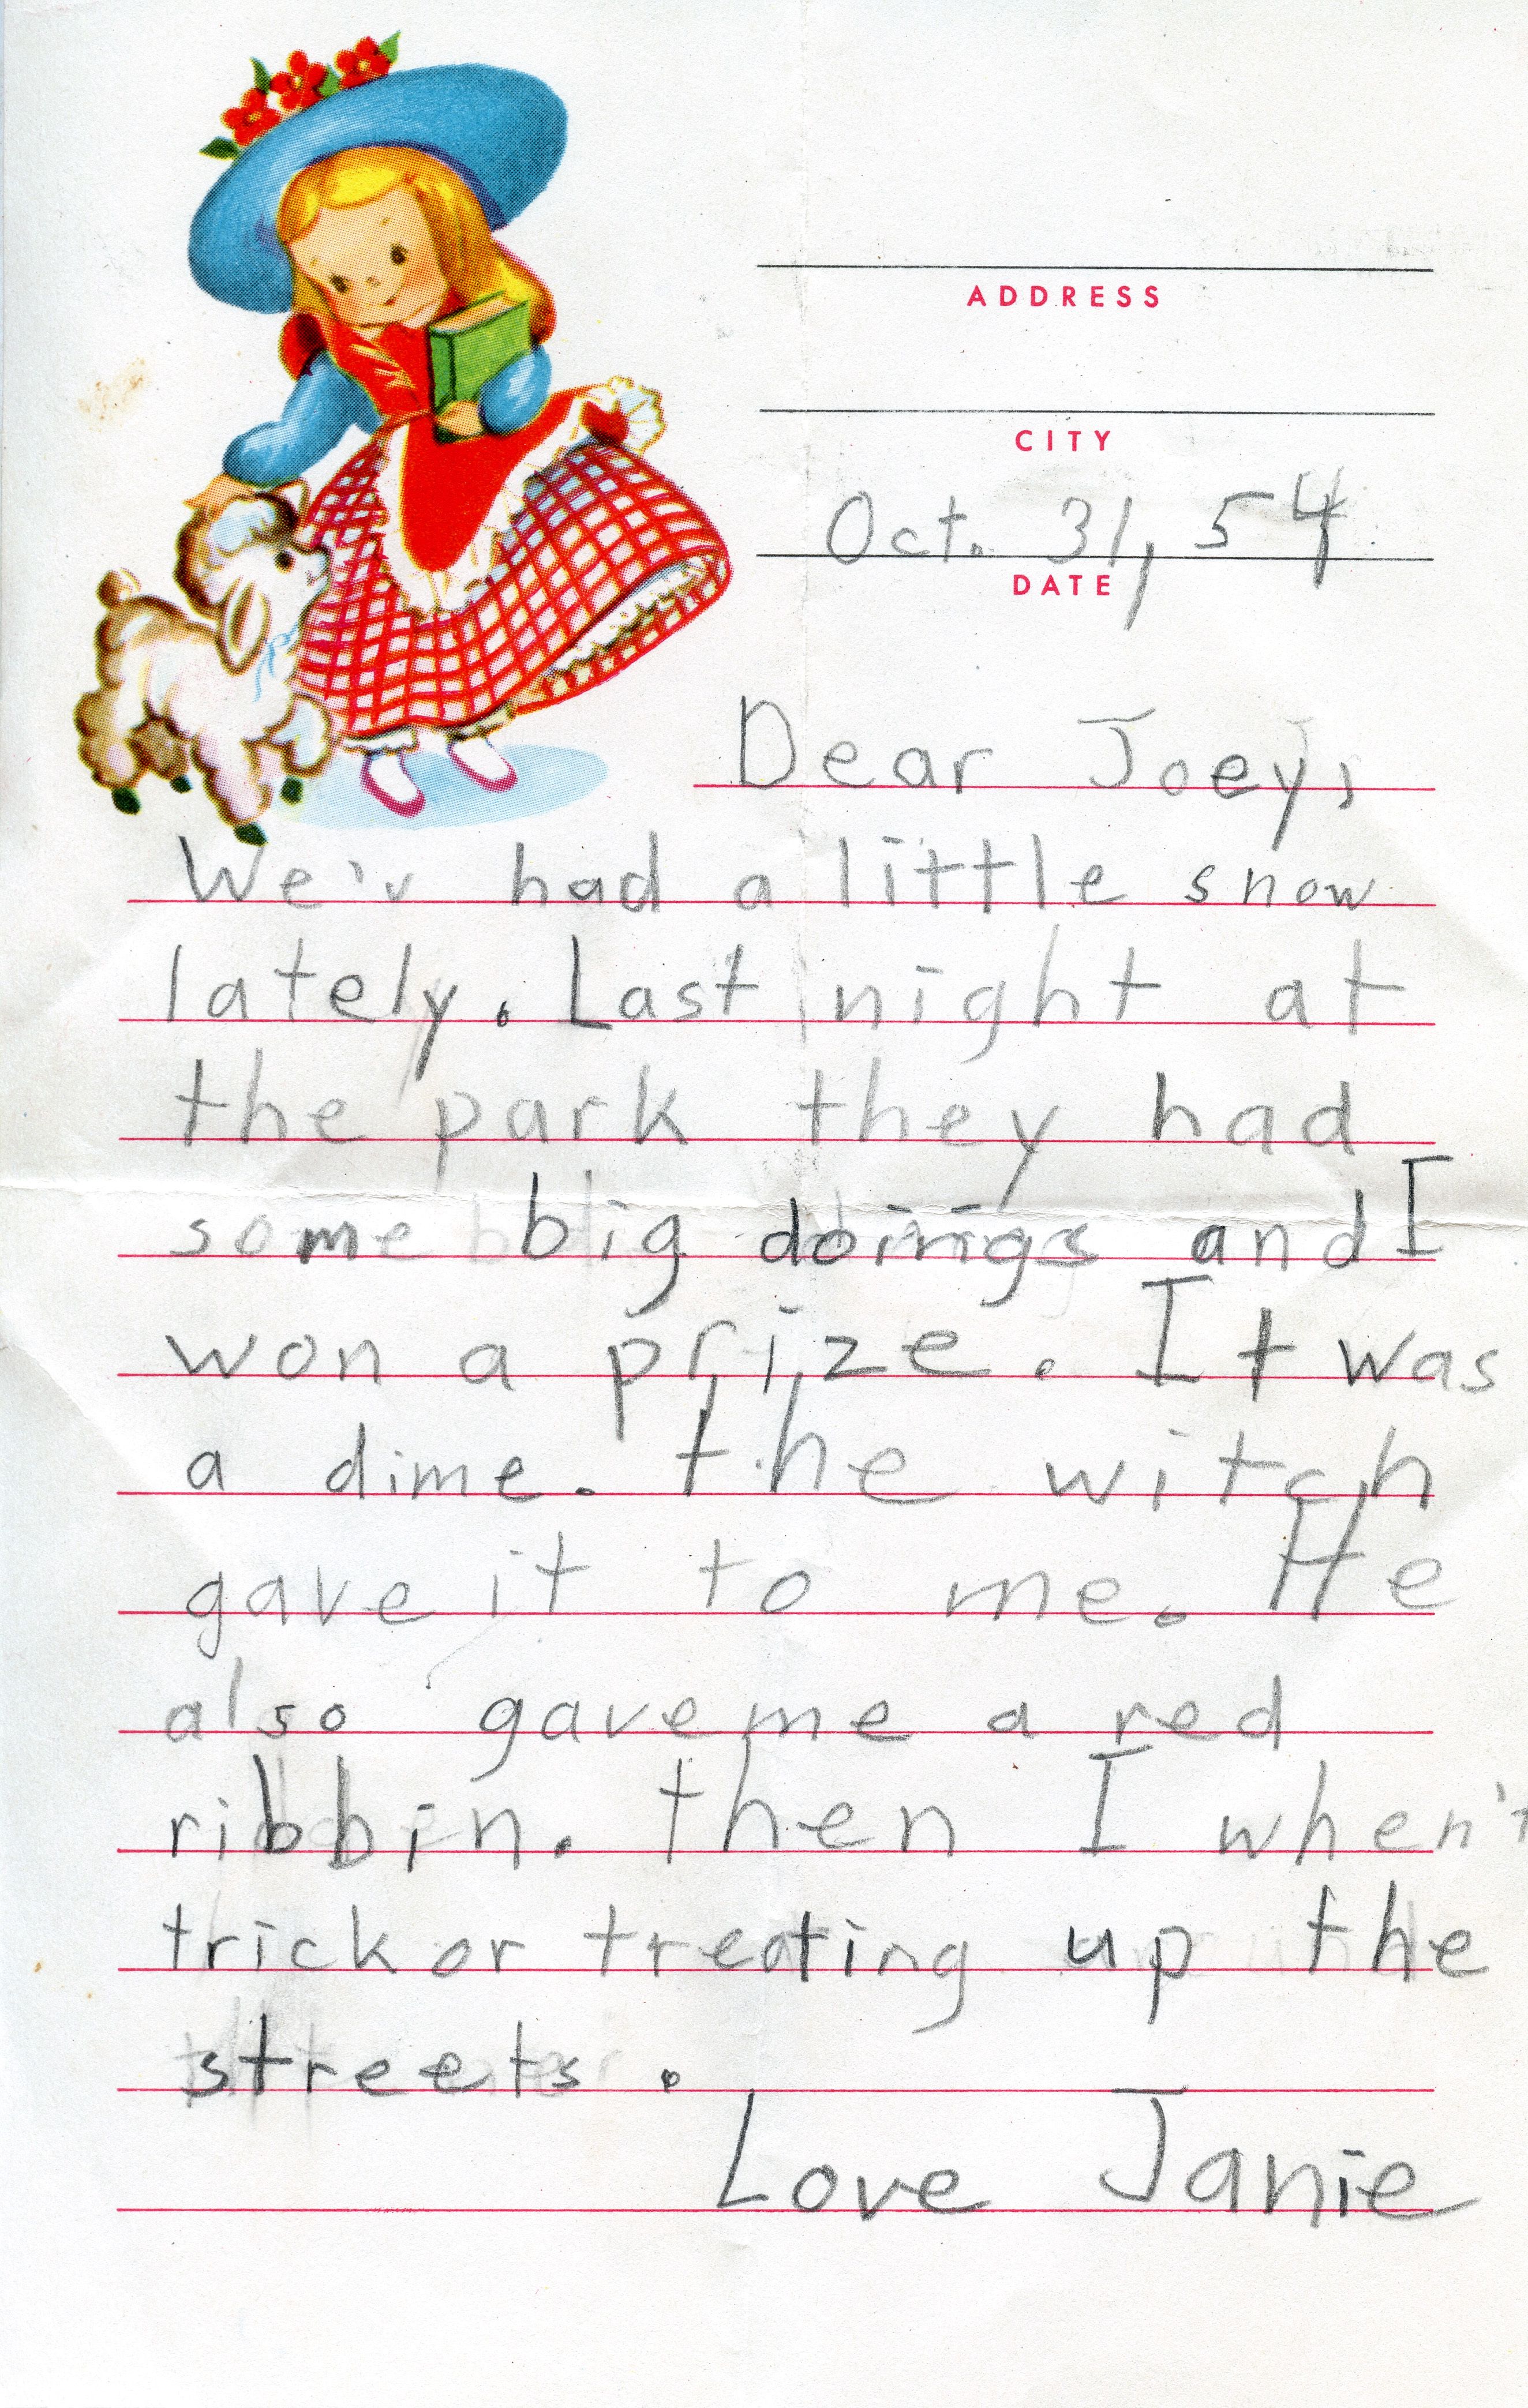 ADDRESS
CITY
Oct. 31, 54
DATE
Dear Joey,
We'v had a little snow
lately. Last night at
the park they had
some big doings and I
won a prize. It was
a dime. the witch
gave it to me. He
also gave me a red
ribbin. then I when't
trick or treating up the
streets.
Love Janie